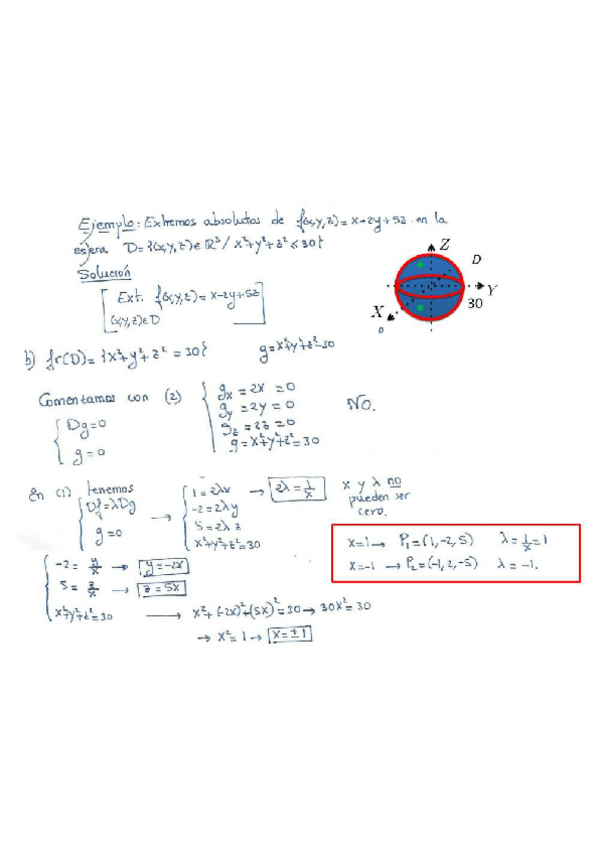 Ejemplo: Extremos absolutos de f(x,y,z)=x-2y+5z en la
esfera D={(x,y,z)∈ℝ³/ x²+y²+z²≤30}
Solución
[ Ext. f(x,y,z)=x-2y+5z
(x,y,z)∈D ]
Z
D
Y
30
X
b) fr(D)={x²+y²+z²=30} g=x²+y²+z²-30
Comentamos con (2)
{ Dg=0
g=0
{ gx=2x=0
gy=2y=0
gz=2z=0
g=x²+y²+z²=30
NO.
En (1) tenemos
{ Df=λDg
g=0
→ { 1=2λx → 2λ=1/x
-2=2λy
5=2λz
x²+y²+z²=30
x y λ no
pueden ser
cero.
x=1 → P₁=(1,-2,5) λ=1/x=1
x=-1 → P₂=(-1,2,-5) λ=-1.
{ -2=y/x → y=-2x
5=z/x → z=5x
x²+y²+z²=30 → x²+(-2x)²+(5x)²=30 → 30x²=30
→ x²=1 → x=±1